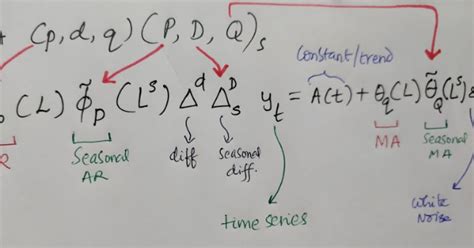 (p, d, q) (P, D, Q)s
Constant/trend
(L) Φ̃p (Lˢ) Δᵈ Δsᴰ yt = A(t) + θq(L) θ̃Q(Lˢ)
Seasonal AR
diff
seasonal diff.
MA
Seasonal MA
time series
White Noise